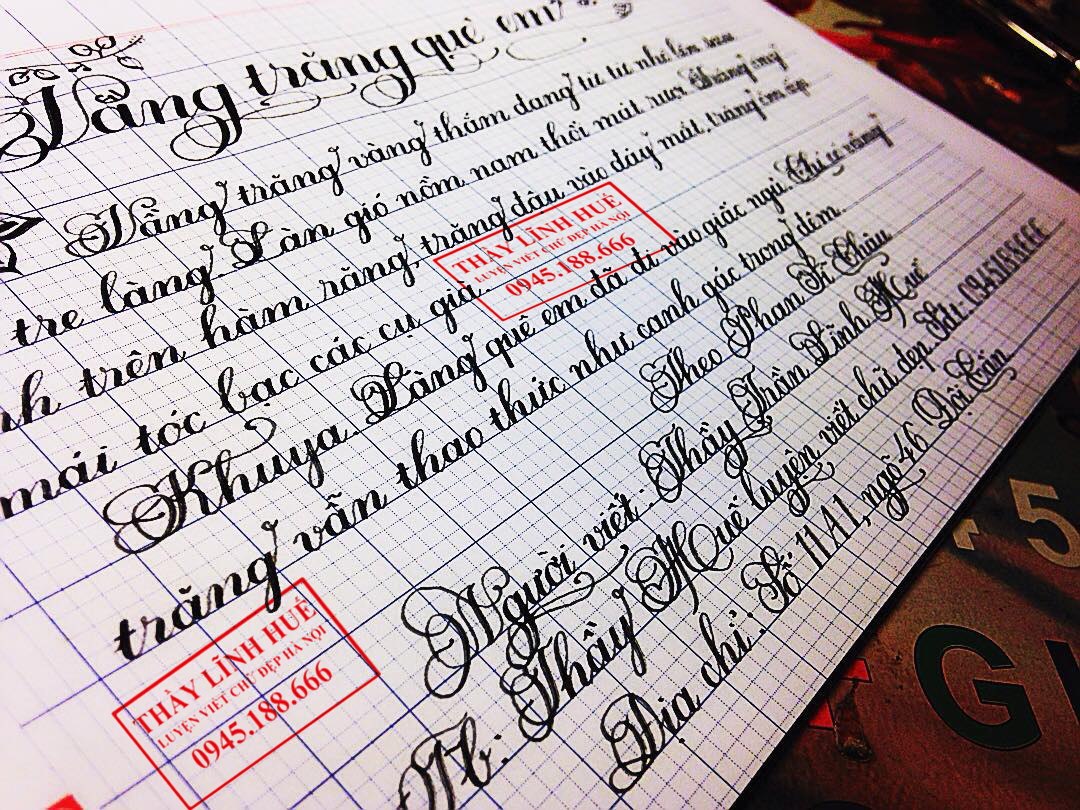 Vầng trăng quê em
Vầng trăng vàng thắm đang từ từ nhô lên sau
tre làng. Làn gió nồm nam thổi mát rượi. Trăng óng
nh trên hàm răng, trăng đậu vào đáy mắt, trăng ôm ấp
mái tóc bạc các cụ già.
Khuya. Làng quê em đã đi vào giấc ngủ. Chỉ có vầng
trăng vẫn thao thức như canh gác trong đêm.
Theo Phan Sĩ Châu
Người viết: Thầy Trần Lĩnh Huế
Fb: Thầy Huế luyện viết chữ đẹp. Sđt: 0945188666
Địa chỉ: Số 11A1, ngõ 46 Đội Cấn
THẦY LĨNH HUẾ
LUYỆN VIẾT CHỮ ĐẸP HÀ NỘI
0945.188.666
THẦY LĨNH HUẾ
LUYỆN VIẾT CHỮ ĐẸP HÀ NỘI
0945.188.666
5
G